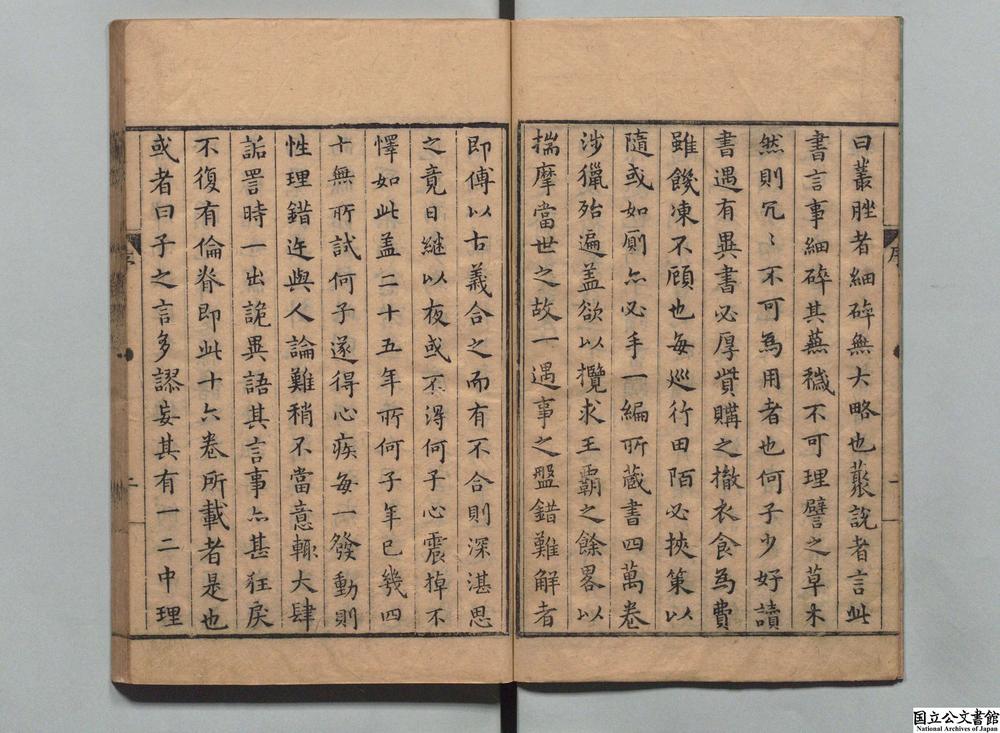 曰叢脞者細碎無大略也叢說者言此
書言事細碎其蕪穢不可理譬之草木
然則冗〻不可為用者也何子少好讀
書遇有異書必厚貲購之撤衣食為費
雖饑凍不顧也每巡行田陌必挾策以
隨或如厠亦必手一編所蔵書四萬卷
涉獵殆遍盖欲以攬求王霸之餘畧以
揣摩當世之故一遇事之盤錯難解者
即傅以古義合之而有不合則深湛思
之竟日継以夜或不得何子心震掉不
懌如此盖二十五年所何子年已幾四
十無所試何子遂得心疾每一發動則
性理錯迕與人論難稍不當意輙大肆
詬詈時一出詭異語其言事亦甚狂戾
不復有倫脊即此十六卷所載者是也
或者曰子之言多謬妄其有一二中理
序
二
国立公文書館
National Archives of Japan